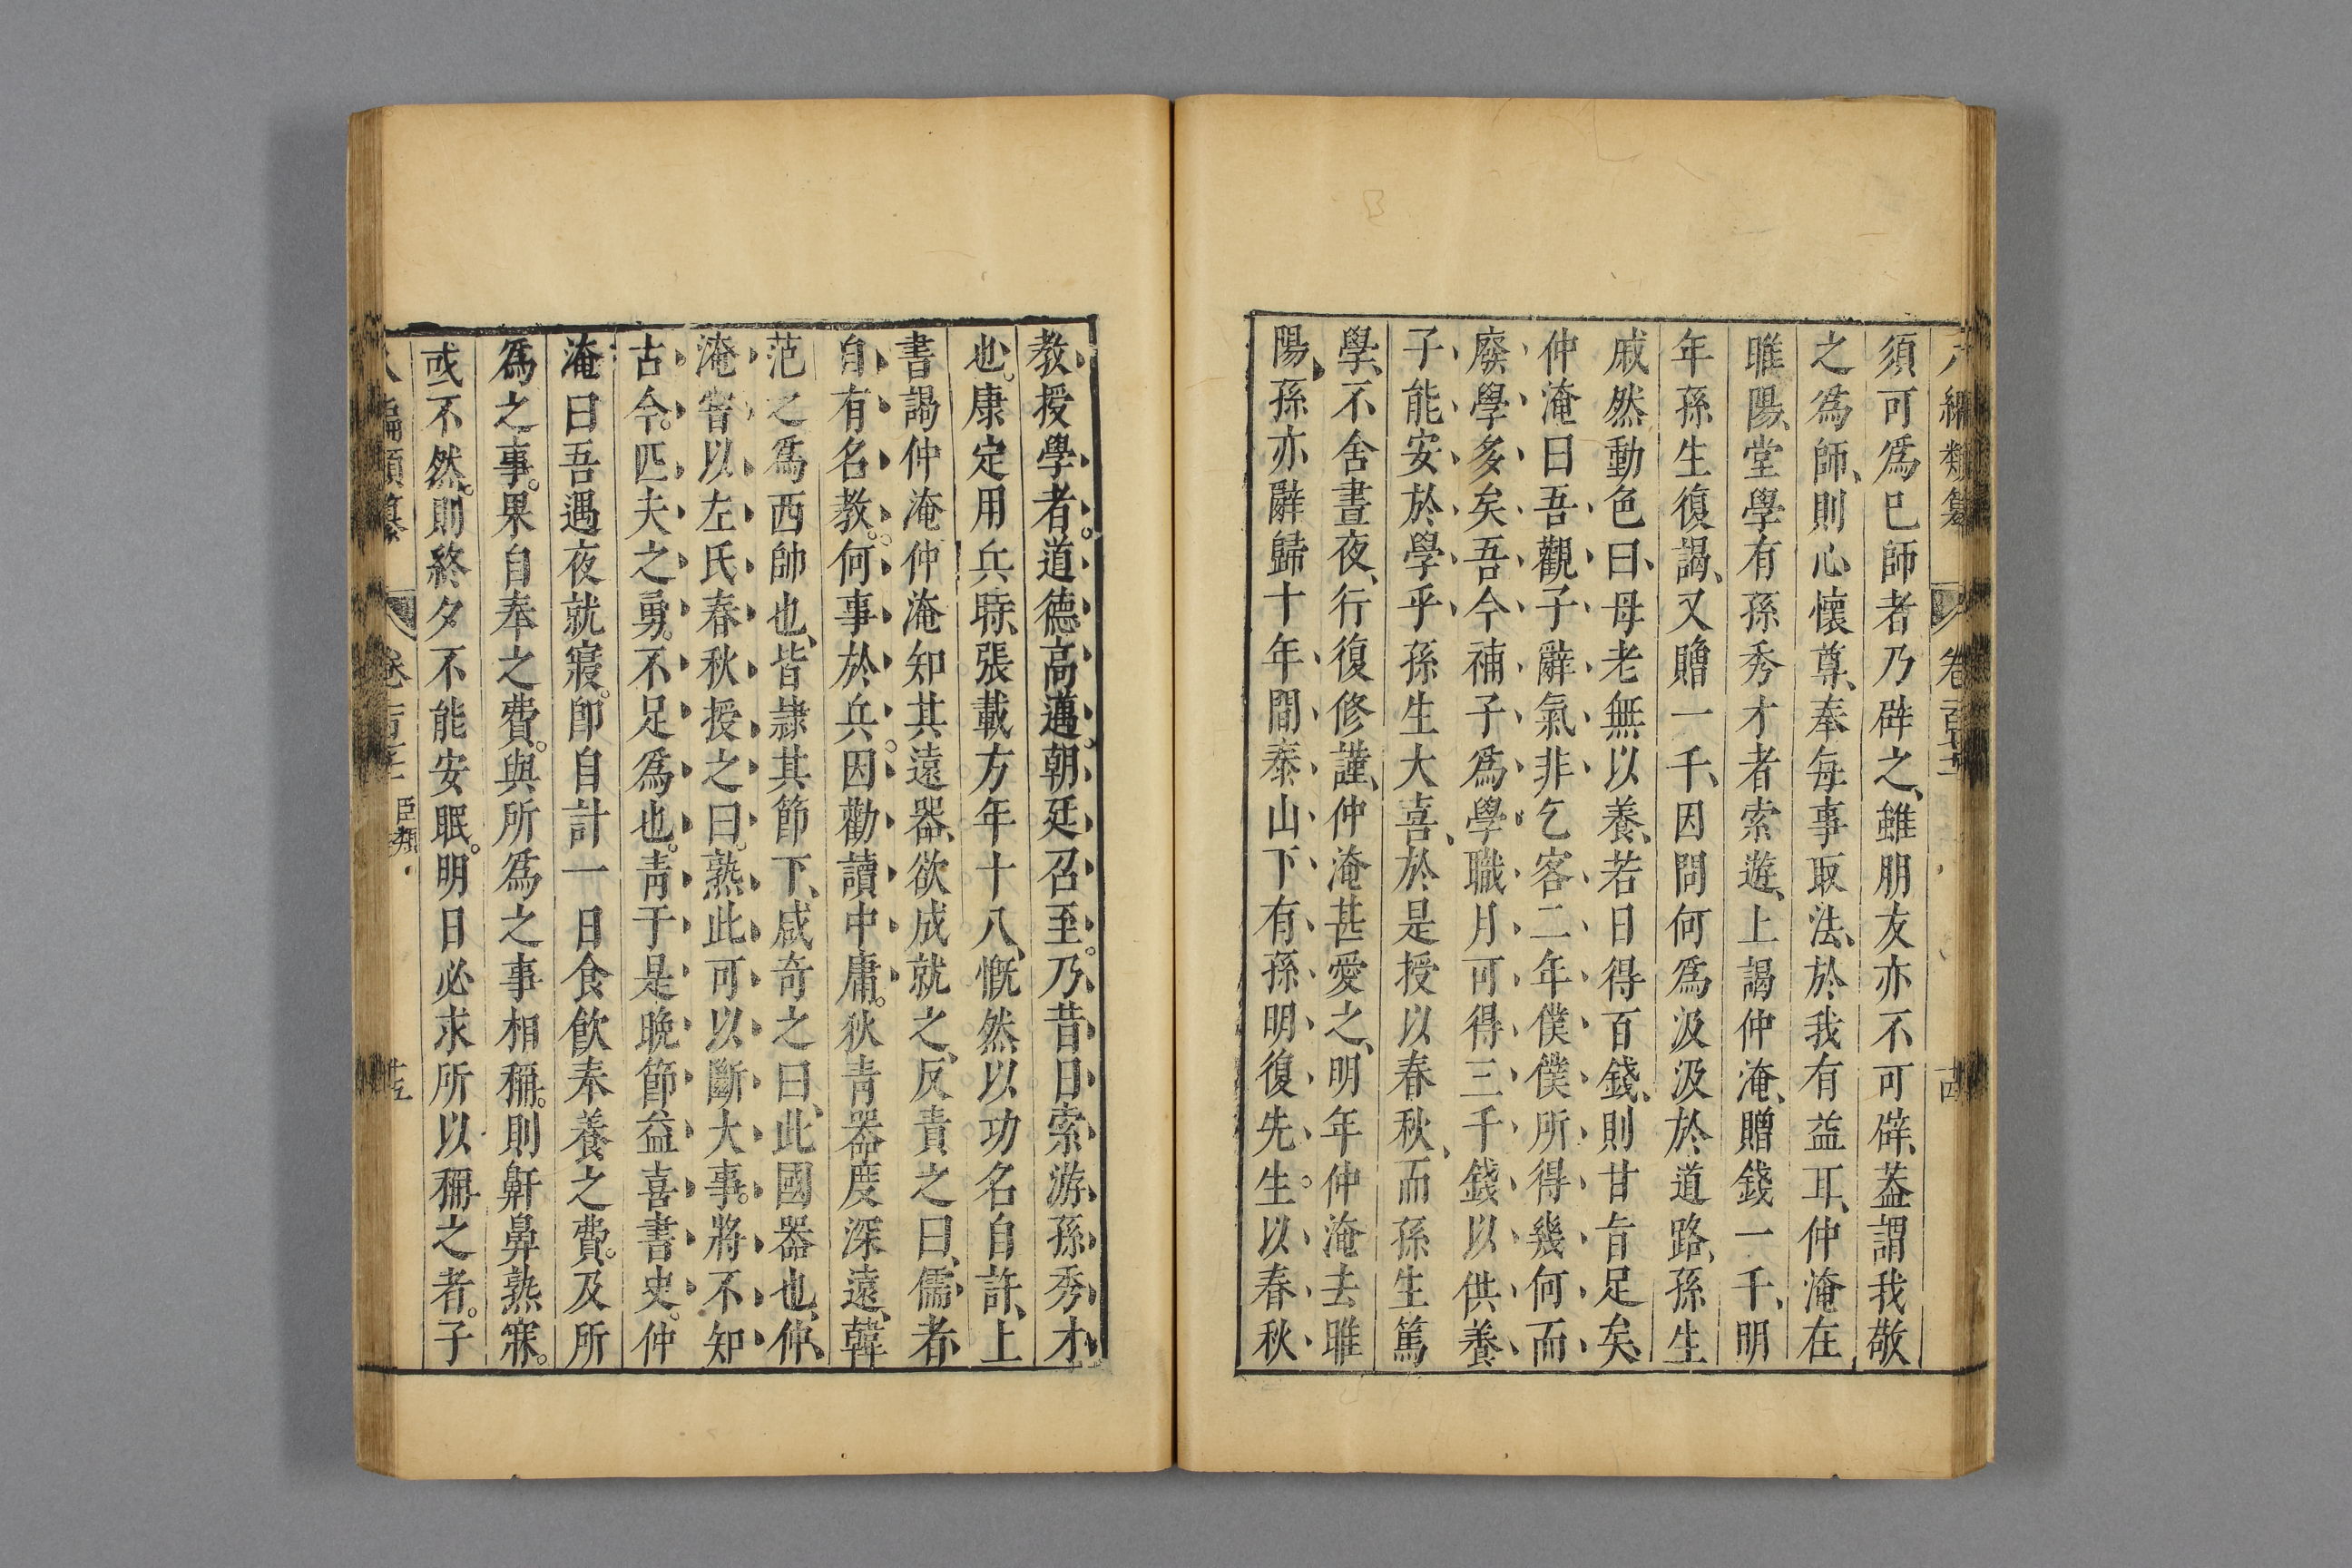 八編類纂 卷百
須可爲已師者乃辟之、雖朋友亦不可辟、葢謂我敬
之爲師、則心懷尊、奉每事取法、於我有益耳、仲淹在
睢陽、堂學有孫秀才者索遊、上謁仲淹、贈錢一千、明
年孫生復謁、又贈一千、因問何爲汲汲於道路、孫生
戚然動色曰、母老無以養、若日得百錢、則甘旨足矣、
仲淹曰吾觀子辭氣非乞客二年僕僕所得幾何而
廢學多矣吾今補子爲學職月可得三千錢以供養
子能安於學乎孫生大喜、於是授以春秋、而孫生篤
學、不舍晝夜、行復修謹、仲淹甚愛之、明年仲淹去睢
陽、孫亦辭歸十年間泰山下有孫明復先生。以春秋
教授學者。道德高邁。朝廷召至。乃昔日索游孫秀才
也。康定用兵時、張載方年十八、慨然以功名自許、上
書謁仲淹仲淹知其遠器、欲成就之、反責之曰、儒者
自有名教。何事於兵。因勸讀中庸。狄青器度深遠、韓
范之爲西帥也、皆隷其節下、咸奇之曰、此國器也、仲
淹嘗以左氏春秋授之曰。熟此可以斷大事。將不知
古今。匹夫之勇。不足爲也。青于是晩節益喜書史。仲
淹曰吾遇夜就寢。卽自計一日食飲奉養之費。及所
爲之事。果自奉之費。與所爲之事相稱。則鼾鼻熟寐。
或不然。則終夕不能安眠。明日必求所以稱之者。子
八編類纂 卷 臣類